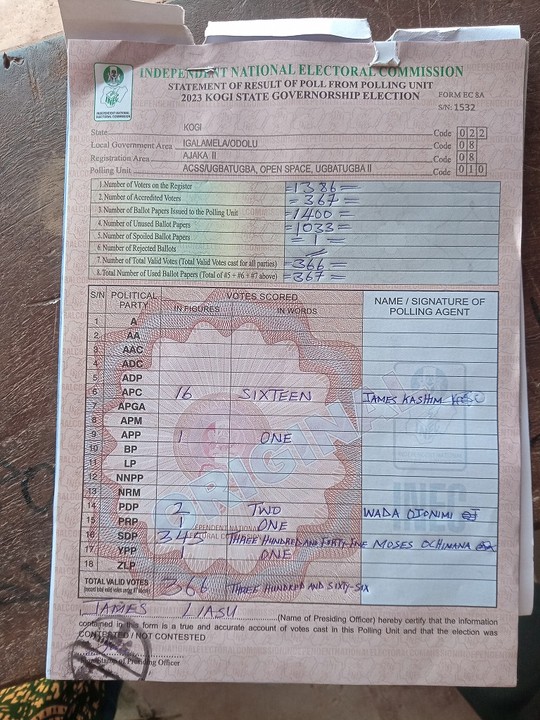 INDEPENDENT NATIONAL ELECTORAL COMMISSION
STATEMENT OF RESULT OF POLL FROM POLLING UNIT
2023 KOGI STATE GOVERNORSHIP ELECTION
FORM EC 8A
S/N: 1532
State KOGI Code 022
Local Government Area IGALAMELA/ODOLU Code 08
Registration Area AJAKA II Code 08
Polling Unit ACSS/UGBATUGBA, OPEN SPACE, UGBATUGBA II Code 010
1.Number of Voters on the Register =1386=
2.Number of Accredited Voters =367=
3.Number of Ballot Papers Issued to the Polling Unit =1400=
4.Number of Unused Ballot Papers =1033=
5.Number of Spoiled Ballot Papers =1=
6.Number of Rejected Ballots
7.Number of Total Valid Votes (Total Valid Votes cast for all parties) =366=
8.Total Number of Used Ballot Papers (Total of #5 + #6 + #7 above) =367=
S/N POLITICAL PARTY VOTES SCORED NAME / SIGNATURE OF POLLING AGENT
IN FIGURES IN WORDS
1 A
2 AA
3 AAC
4 ADC
5 ADP
6 APC 16 SIXTEEN JAMES KASHIM
7 APGA
8 APM
9 APP 1 ONE
10 BP
11 LP
12 NNPP
13 NRM
14 PDP 2 TWO WADA OJONIMI
15 PRP 1 ONE
16 SDP 345 THREE HUNDRED AND FORTY-FIVE MOSES OCHINANA
17 YPP 1 ONE
18 ZLP
ORIGINAL
INEC
TOTAL VALID VOTES 366 THREE HUNDRED AND SIXTY-SIX
I, JAMES LIASU (Name of Presiding Officer) hereby certify that the information
contained in this form is a true and accurate account of votes cast in this Polling Unit and that the election was
CONTESTED / NOT CONTESTED
Stamp of Presiding Officer